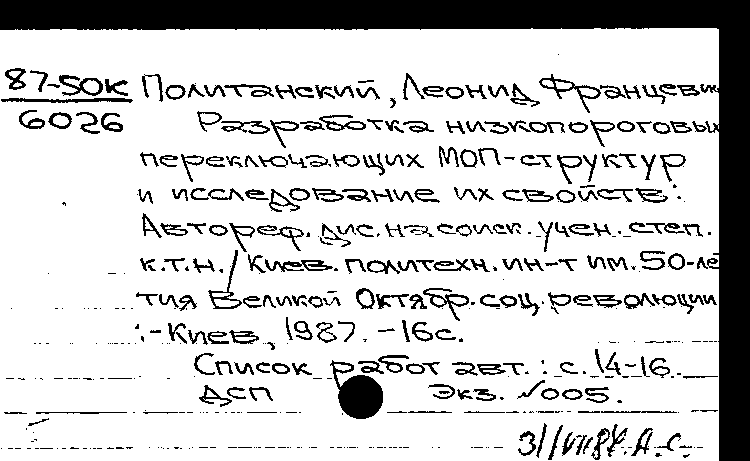 87-50К Политанский, Леонид Францевич
6026 Разработка низкопороговых
переключающих МОП-структур
и исследование их свойств:
Автореф. дис. на соиск. учен. степ.
к.т.н. / Киев. политехн. ин-т им. 50-ле
тия Великой Октябр. соц. революции
.-Киев, 1987. -16с.
Список работ авт.: с. 14-16.
ДСП Экз. №005.
А.С.